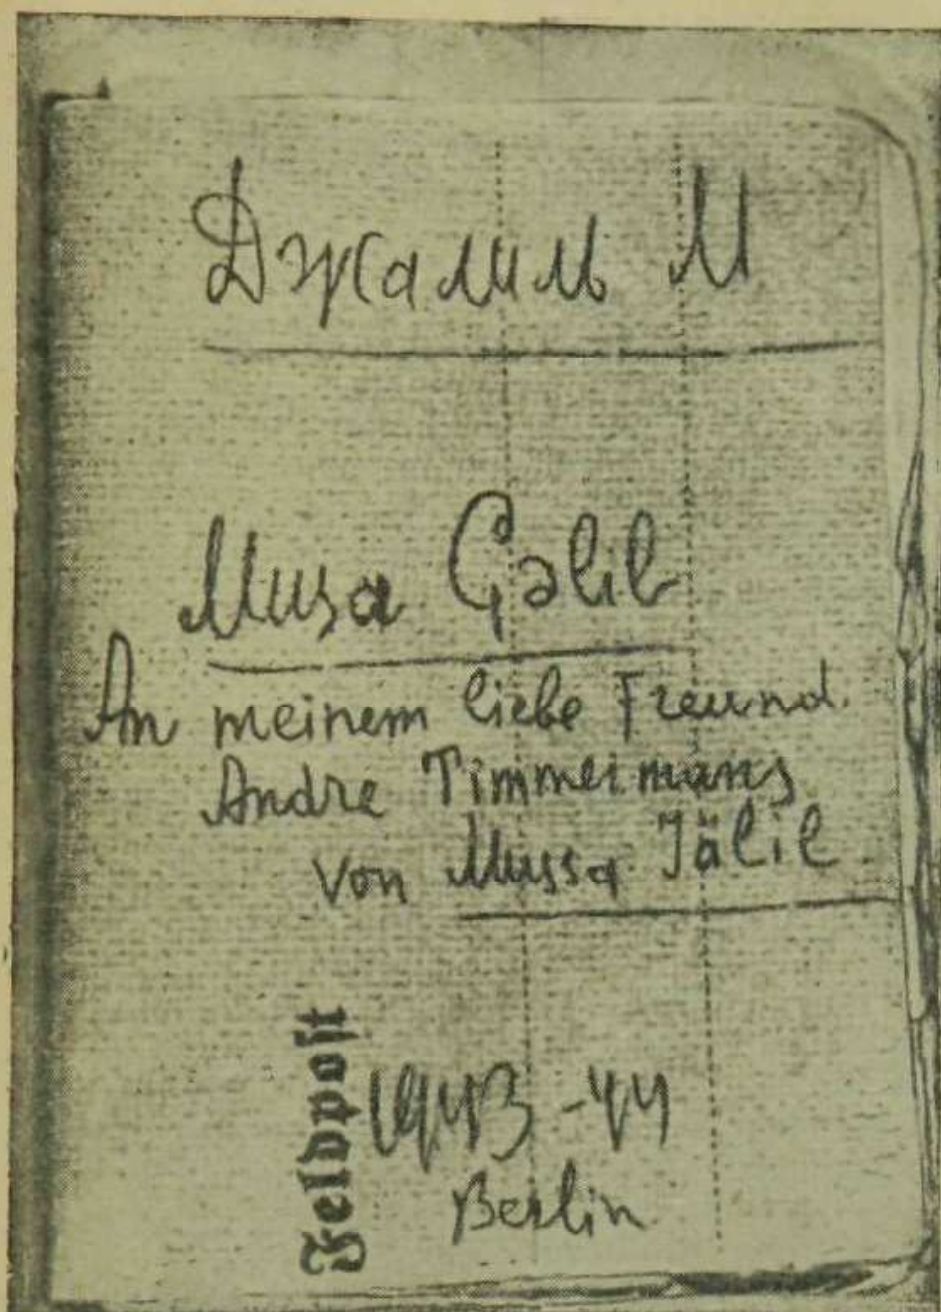 Джалиль М
Musa Çəlil
An meinem liebe Freund.
Andre Timmermans
von Mussa Jälil
Feldpost
1943-44
Berlin